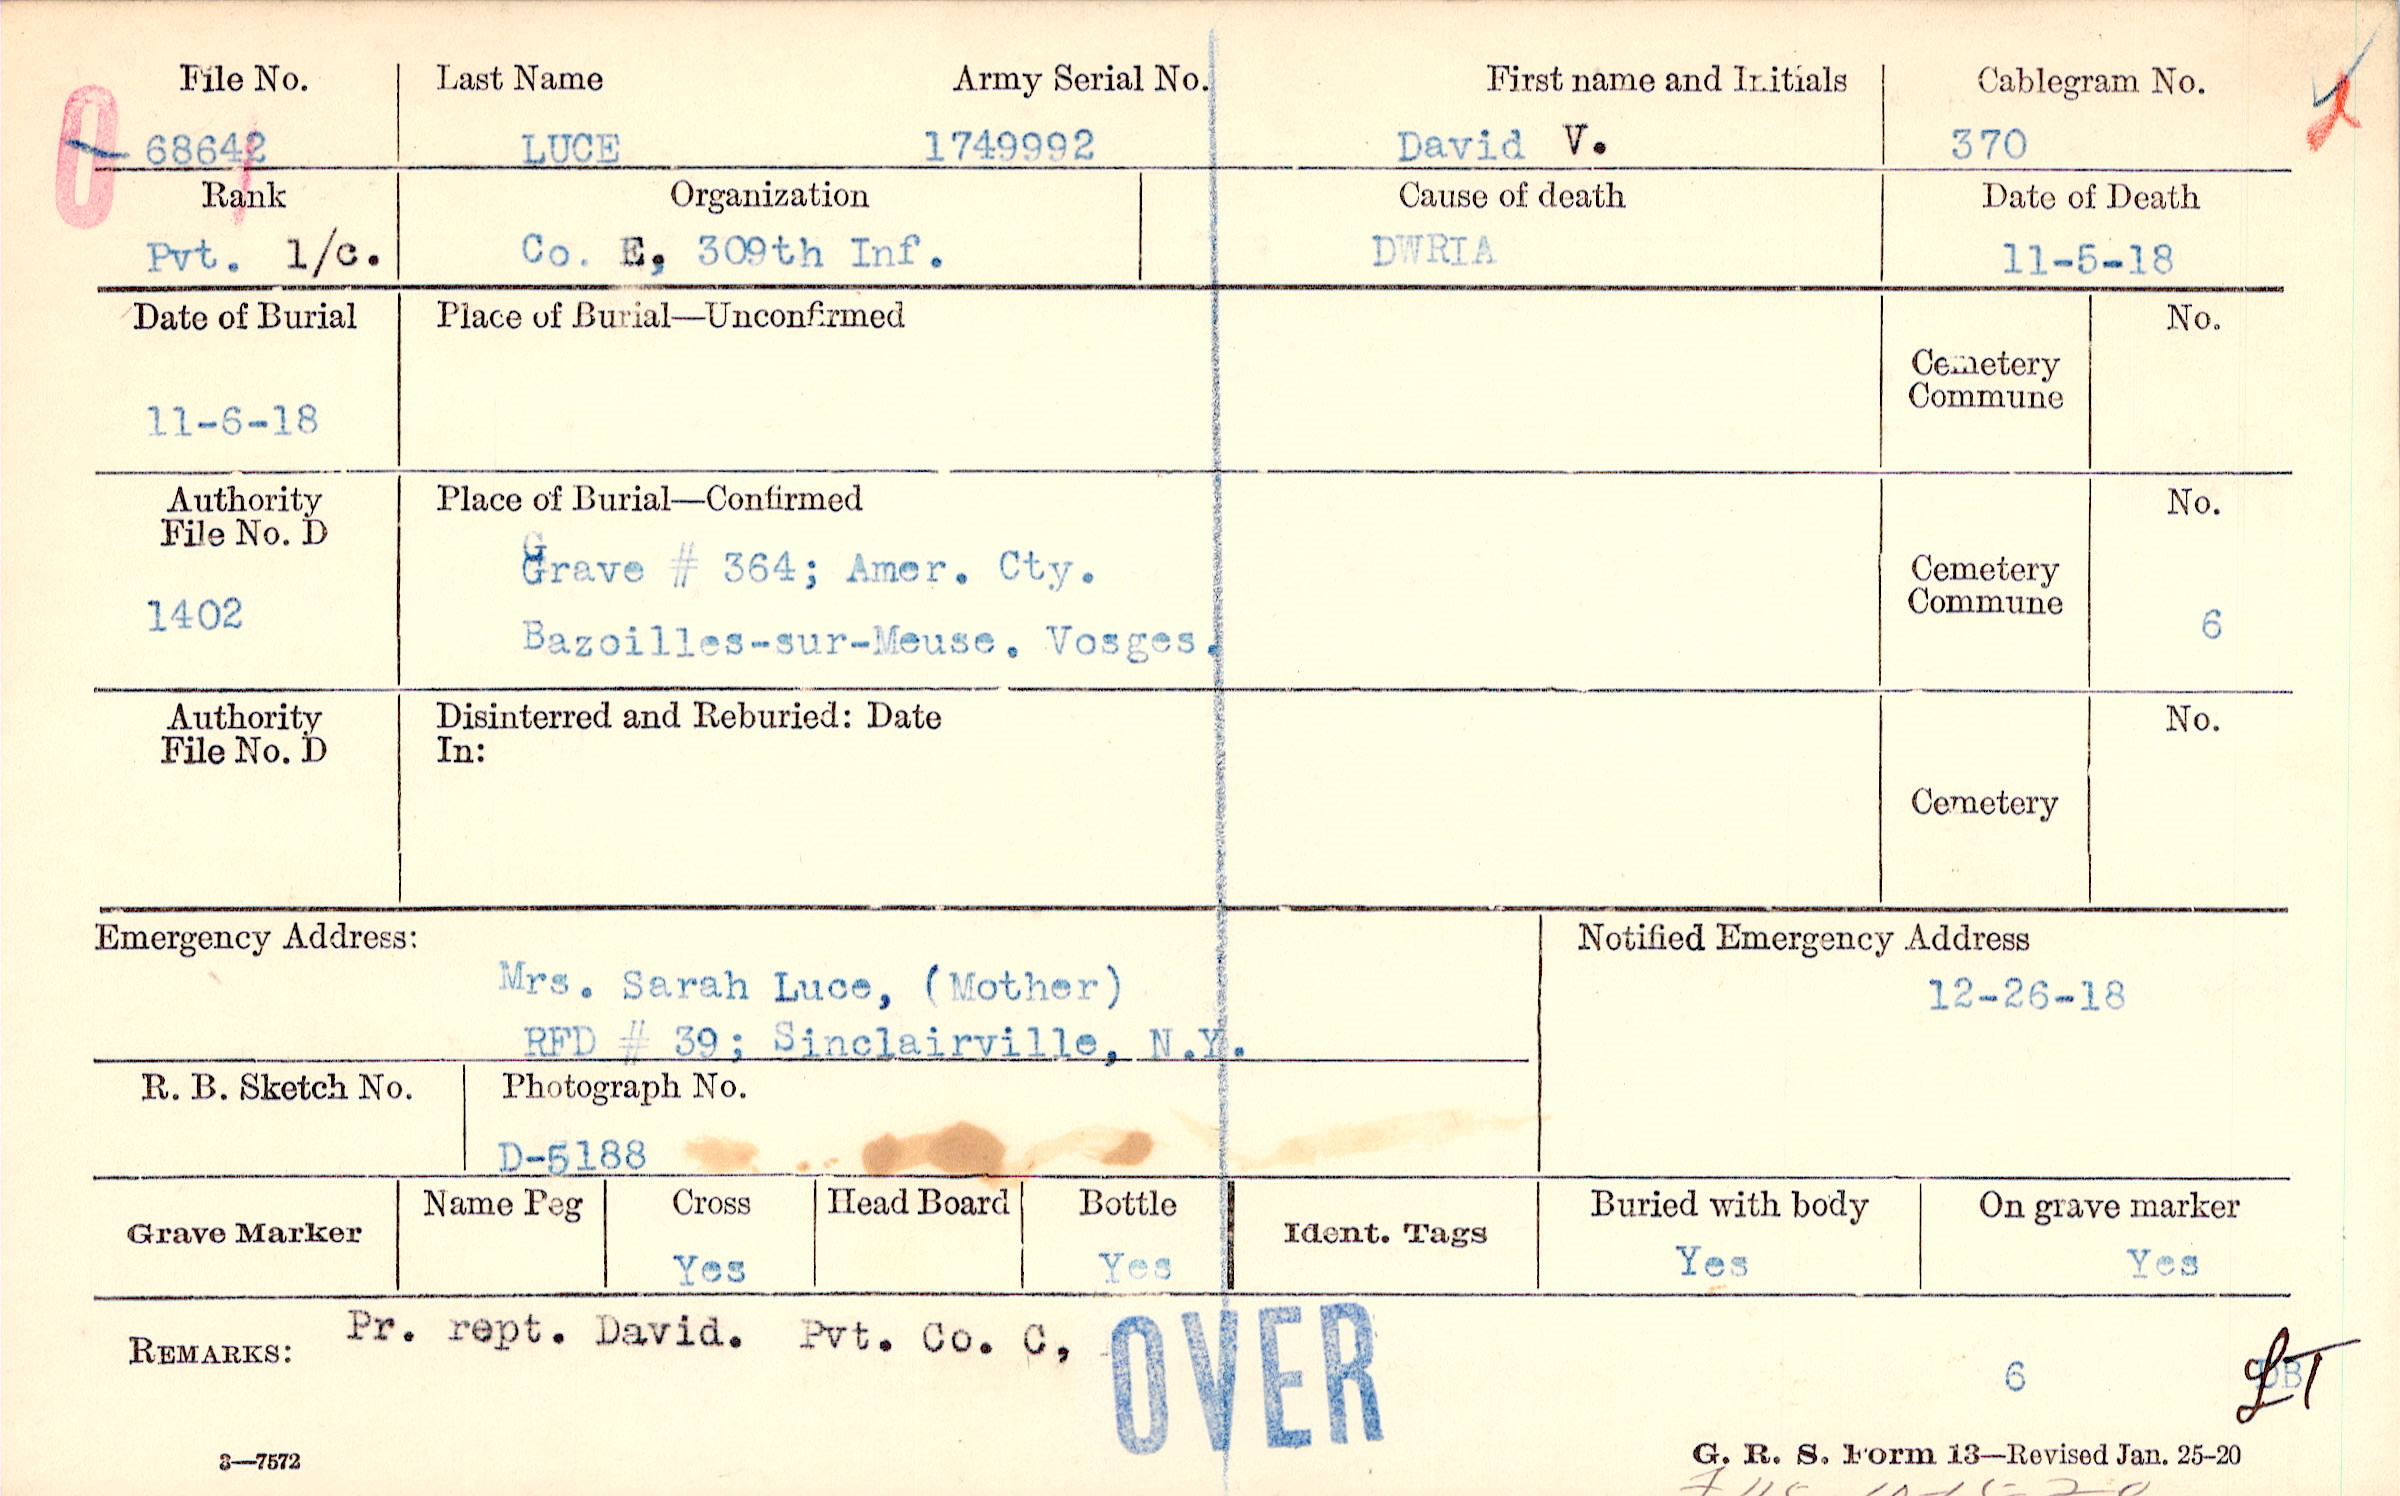 File No. Last Name Army Serial No. First name and Initials Cablegram No.
68642 LUCE 1749992 David V. 370
Rank Organization Cause of death Date of Death
Pvt. 1/c. Co. E, 309th Inf. DWRIA 11-5-18
Date of Burial Place of Burial—Unconfirmed No.
Cemetery
Commune
11-6-18
Authority Place of Burial—Confirmed No.
File No. D
Grave # 364; Amer. Cty. Cemetery
1402 Commune 6
Bazoilles-sur-Meuse. Vosges.
Authority Disinterred and Reburied: Date No.
File No. D In:
Cemetery
Emergency Address: Notified Emergency Address
Mrs. Sarah Luce, (Mother) 12-26-18
RFD # 39; Sinclairville, N.Y.
R. B. Sketch No. Photograph No.
D-5188
Grave Marker Name Peg Cross Head Board Bottle Ident. Tags Buried with body On grave marker
Yes Yes Yes Yes
REMARKS: Pr. rept. David. Pvt. Co. C,
OVER
6 LT
3—7572 G. R. S. Form 13—Revised Jan. 25-20